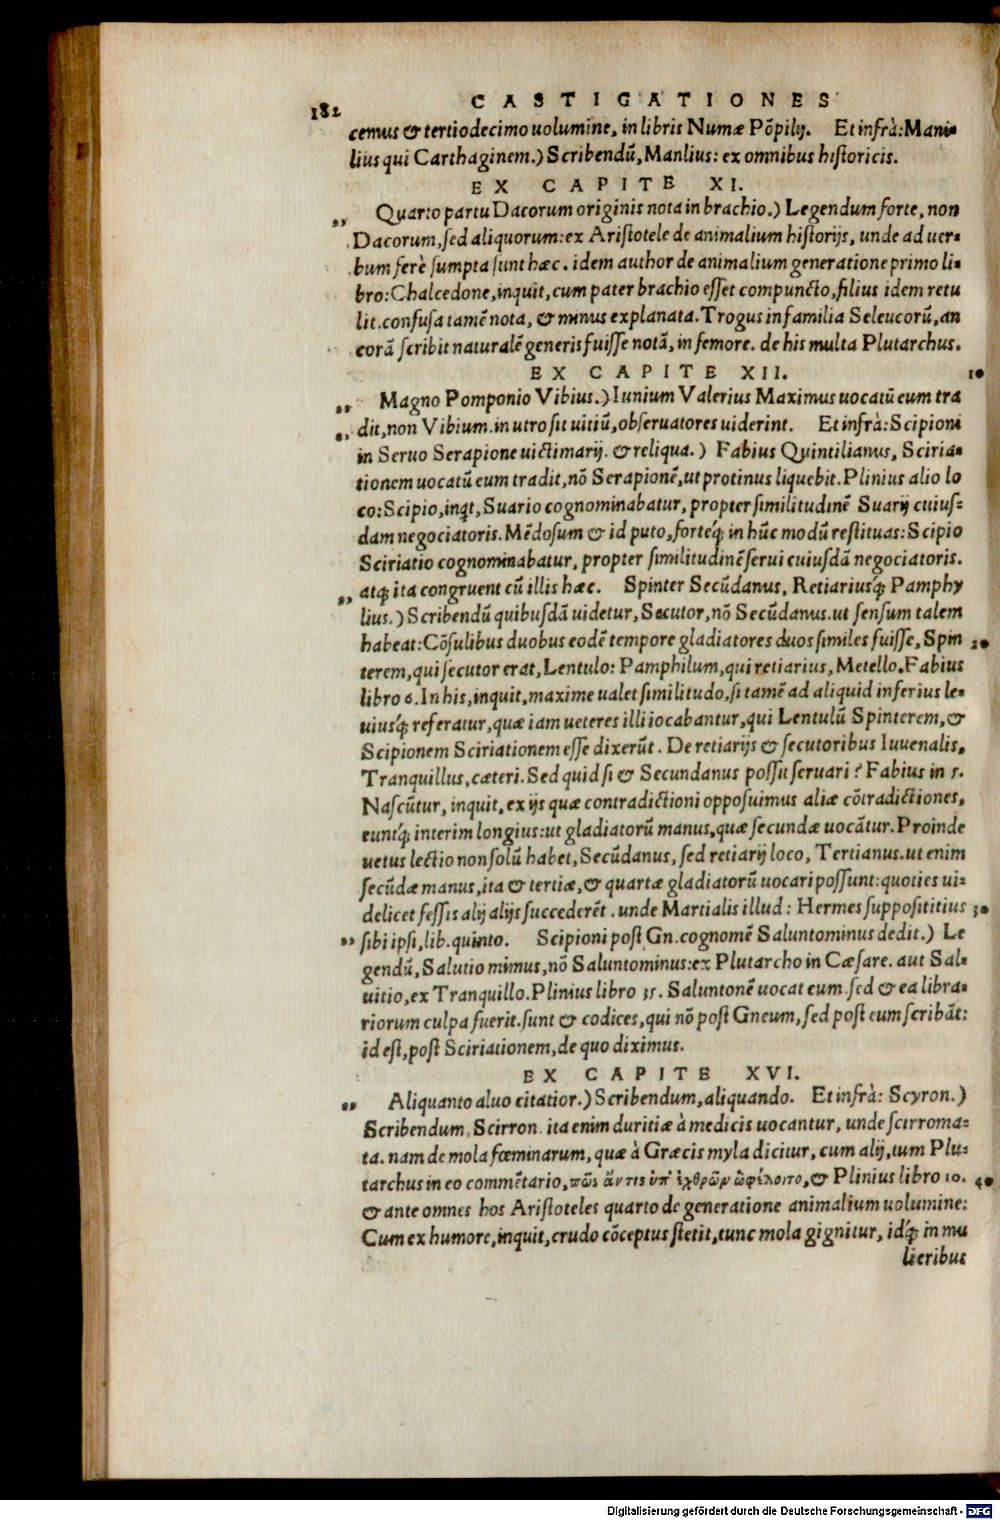 182 CASTIGATIONES
cemus & tertiodecimo uolumine, in libris Numæ Põpilij. Et infrà: Mani-
lius qui Carthaginem.) Scribendũ, Manlius: ex omnibus historicis.
EX CAPITE XI.
,, Quarto partu Dacorum originis nota in brachio.) Legendum forte, non
Dacorum, sed aliquorum: ex Aristotele de animalium historijs, unde ad uer-
bum ferè sumpta sunt hæc. idem author de animalium generatione primo li-
bro: Chalcedone, inquit, cum pater brachio esset compuncto, filius idem retu
lit. confusa tamẽ nota, & minus explanata. Trogus in familia Seleucorũ, an
corã scribit naturalẽ generis fuisse notã, in femore. de his multa Plutarchus.
EX CAPITE XII. 10
,, Magno Pomponio Vibius.) Iunium Valerius Maximus uocatũ eum tra
,, dit, non Vibium. in utro sit uitiũ, obseruatores uiderint. Et infrà: Scipioni
in Seruo Serapione uictimarij. & reliqua.) Fabius Quintilianus, Sciria-
tionem uocatũ eum tradit, nõ Serapionẽ, ut protinus liquebit. Plinius alio lo
co: Scipio, inqt, Suario cognominabatur, propter similitudinẽ Suarij cuius-
dam negociatoris. Mẽdosum & id puto, forteq́; in hũc modũ restituas: Scipio
Sciriatio cognominabatur, propter similitudinẽ serui cuiusdã negociatoris.
,, atq; ita congruent cũ illis hæc. Spinter Secũdanus, Retiariusq́; Pamphy
lius.) Scribendũ quibusdã uidetur, Secutor, nõ Secũdanus. ut sensum talem
habeat: Cõsulibus duobus eodẽ tempore gladiatores duos similes fuisse, Spin 20
terem, qui secutor erat, Lentulo: Pamphilum, qui retiarius, Metello. Fabius
libro 6. In his, inquit, maxime ualet similitudo, si tamẽ ad aliquid inferius le-
uiusq́; referatur, quæ iam ueteres illi iocabantur, qui Lentulũ Spinterem, &
Scipionem Sciriationem esse dixerũt. De retiarijs & secutoribus Iuuenalis,
Tranquillus, cæteri. Sed quid si & Secundanus possit seruari? Fabius in 5.
Nascũtur, inquit, ex ijs quæ contradictioni opposuimus aliæ cõtradictiones,
euntq́; interim longius: ut gladiatorũ manus, quæ secundæ uocãtur. Proinde
uetus lectio non solũ habet, Secũdanus, sed retiarij loco, Tertianus. ut enim
secũdæ manus, ita & tertiæ, & quartæ gladiatorũ uocari possunt: quoties ui-
delicet fessis alij alijs succederẽt. unde Martialis illud: Hermes supposititius 30
,, sibi ipsi, lib. quinto. Scipioni post Gn. cognomẽ Saluntominus dedit.) Le
gendũ, Salutio mimus, nõ Saluntominus: ex Plutarcho in Cæsare. aut Sal-
uitio, ex Tranquillo. Plinius libro 35. Saluntonẽ uocat eum. sed & ea libra-
riorum culpa fuerit. sunt & codices, qui nõ post Gneum, sed post eum scribãt:
id est, post Sciriationem, de quo diximus.
EX CAPITE XVI.
,, Aliquanto aluo citatior.) Scribendum, aliquando. Et infrà: Scyron.)
Scribendum, Scirron. ita enim duritiæ à medicis uocantur, unde scirroma-
ta. nam de mola fœminarum, quæ à Græcis myla dicitur, cum alij, tum Plu-
tarchus in eo commẽtario, πῶς ἄν τις ὑπ' ἐχθρῶν ὠφέλοιτο, & Plinius libro 10. 40
& ante omnes hos Aristoteles quarto de generatione animalium uolumine:
Cum ex humore, inquit, crudo cõceptus stetit, tunc mola gignitur, idq́; in mu
lieribus
Digitalisierung gefördert durch die Deutsche Forschungsgemeinschaft - DFG